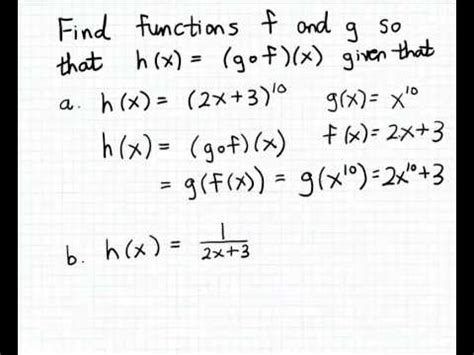 Find functions f and g so
that h(x) = (g∘f)(x) given that
a. h(x) = (2x+3)¹⁰ g(x) = x¹⁰
h(x) = (g∘f)(x) f(x) = 2x+3
= g(f(x)) = g(x¹⁰) = 2x¹⁰+3
b. h(x) = 1/(2x+3)